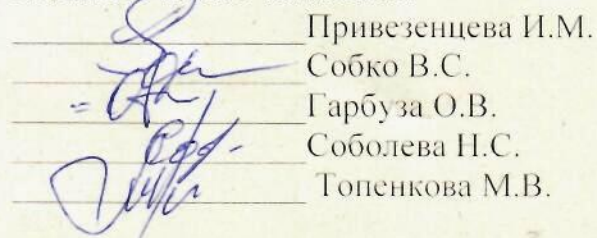 Привезенцева И.М.
Собко В.С.
Гарбуза О.В.
Соболева Н.С.
Топенкова М.В.